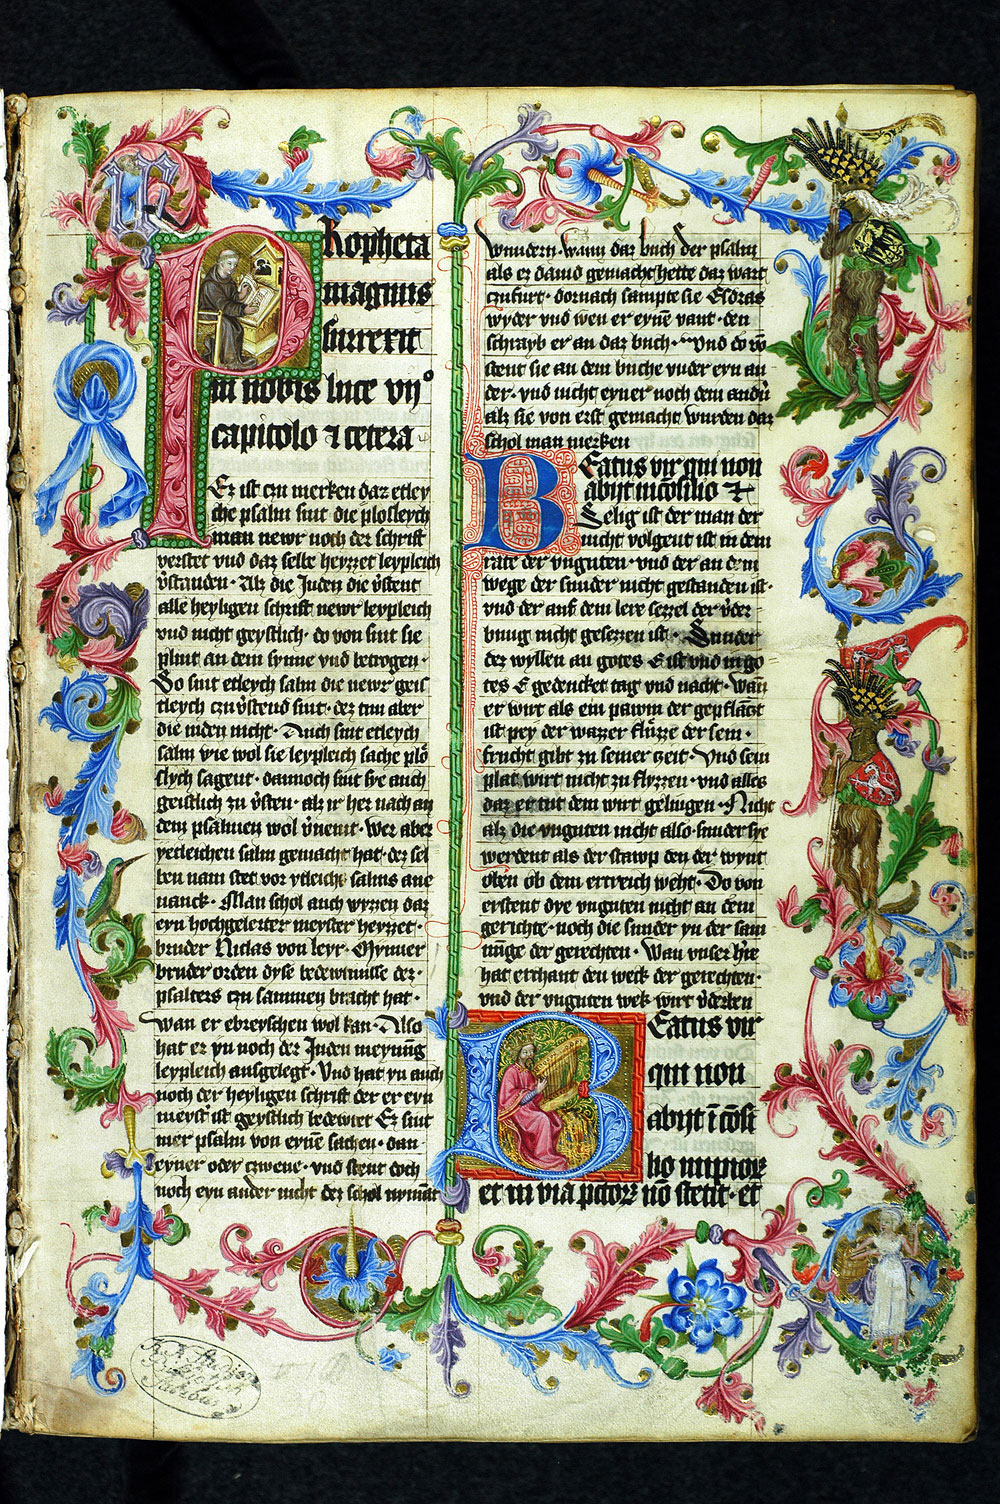 Propheta
magnus
surrexit
in nobis luce vij°
capitolo et cetera
Ez ist czu merken daz etley
che psalm sint die ploslych
man newr noch der schrift
verstet vnd daz selbe heysset leypleich
v̄standen · Als die Juden die v̄stent
alle heyligen schrift newr leypleich
vnd nicht geystlich · do von sint sie
plint an dem synne vnd betrogen ·
So sint etleych salm die newr geis
tleych czu v̄stend sint · dez tun aber
die iuden nicht · Auch sint etleych
salm wie wol sie leypleich sache plo
slych sagent · dannoch sint sye auch
geistlich zu v̄sten · als ir her nach an
dem psalmen wol v̄nemt · Wer aber
yetleichen salm gemacht hat · dez sel
ben nam stet vor ytleichē salms ane
uanck · Man schol auch wyzzen daz
eyn hochgelerter meyster heyzzet ·
bruder Niclas von leyr · Mynner
bruder orden dyse bedewtnisse dez ·
psalters czu sammen bracht hat ·
wan er ebreyschen wol kan · Also
hat er yn noch der Juden meynūg
leypleich ausgelegt · Vnd hat yn auch
noch der heyligen schrift der er eyn
meyst̄ ist geystlich bedewtet Ez sint
mer psalm von eynē sachen · dan ·
eyner oder czwene · vnd stent doch
noch eyn ander nicht dez schol nymāt
wundern · wann daz buch der psalm
als ez dauid gemacht hette daz wart
czufurt · dornach sampte sie Esdras
wyder vnd wen er eynē vant · den
schrayb er an daz buch · Vnd do vō
stent sie an dem buche vnder eyn an
der · vnd nicht eyner noch dem andn̄
als sie von erst gemacht wurden daz
schol man merken
Beatus vir qui non
abijt in cōsilio etc
Selig ist der man der
nicht volgent ist in dem
rate der vnguten · vnd der an dem
wege der sunder nicht gestanden ist ·
vnd der auf dem lere sezzel der v̄der ·
bnug nicht gesezzen ist · Sunder
dez wyllen an gotes E ist vnd in go
tes E gedencket tag vnd nacht · Wan̄
er wirt als ein pawm der gepflāczt
ist pey der wazzer flüzze der sein ·
frucht gibt zu seiner zeit · Vnd sein
plat wirt nicht zu flyzzen · vnd alles
daz er tut dem wirt gelingen · Nicht
als die vnguten nicht also · sunder sye
werdent als der stawp den der wynt
oben ob dem ertreich weht · Do von
erstent dye vnguten nicht an dem
gerichte · noch die sunder yn der sam
nūge der gerechten · Wan vnser h̄re
hat erchant den wek der gerechten ·
vnd der vnguten wek wirt v̄derben
Beatus vir
qui non
abijt ī cōsi
lio impior̄
et in via p̄ctor̄ nō stetit · et